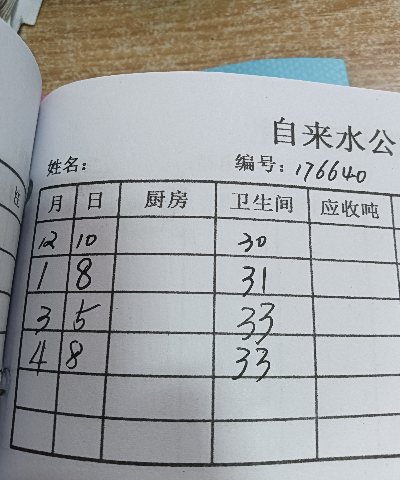 自来水公
姓名： 编号：176640
月 日 厨房 卫生间 应收吨
12 10 30
1 8 31
3 5 33
4 8 33